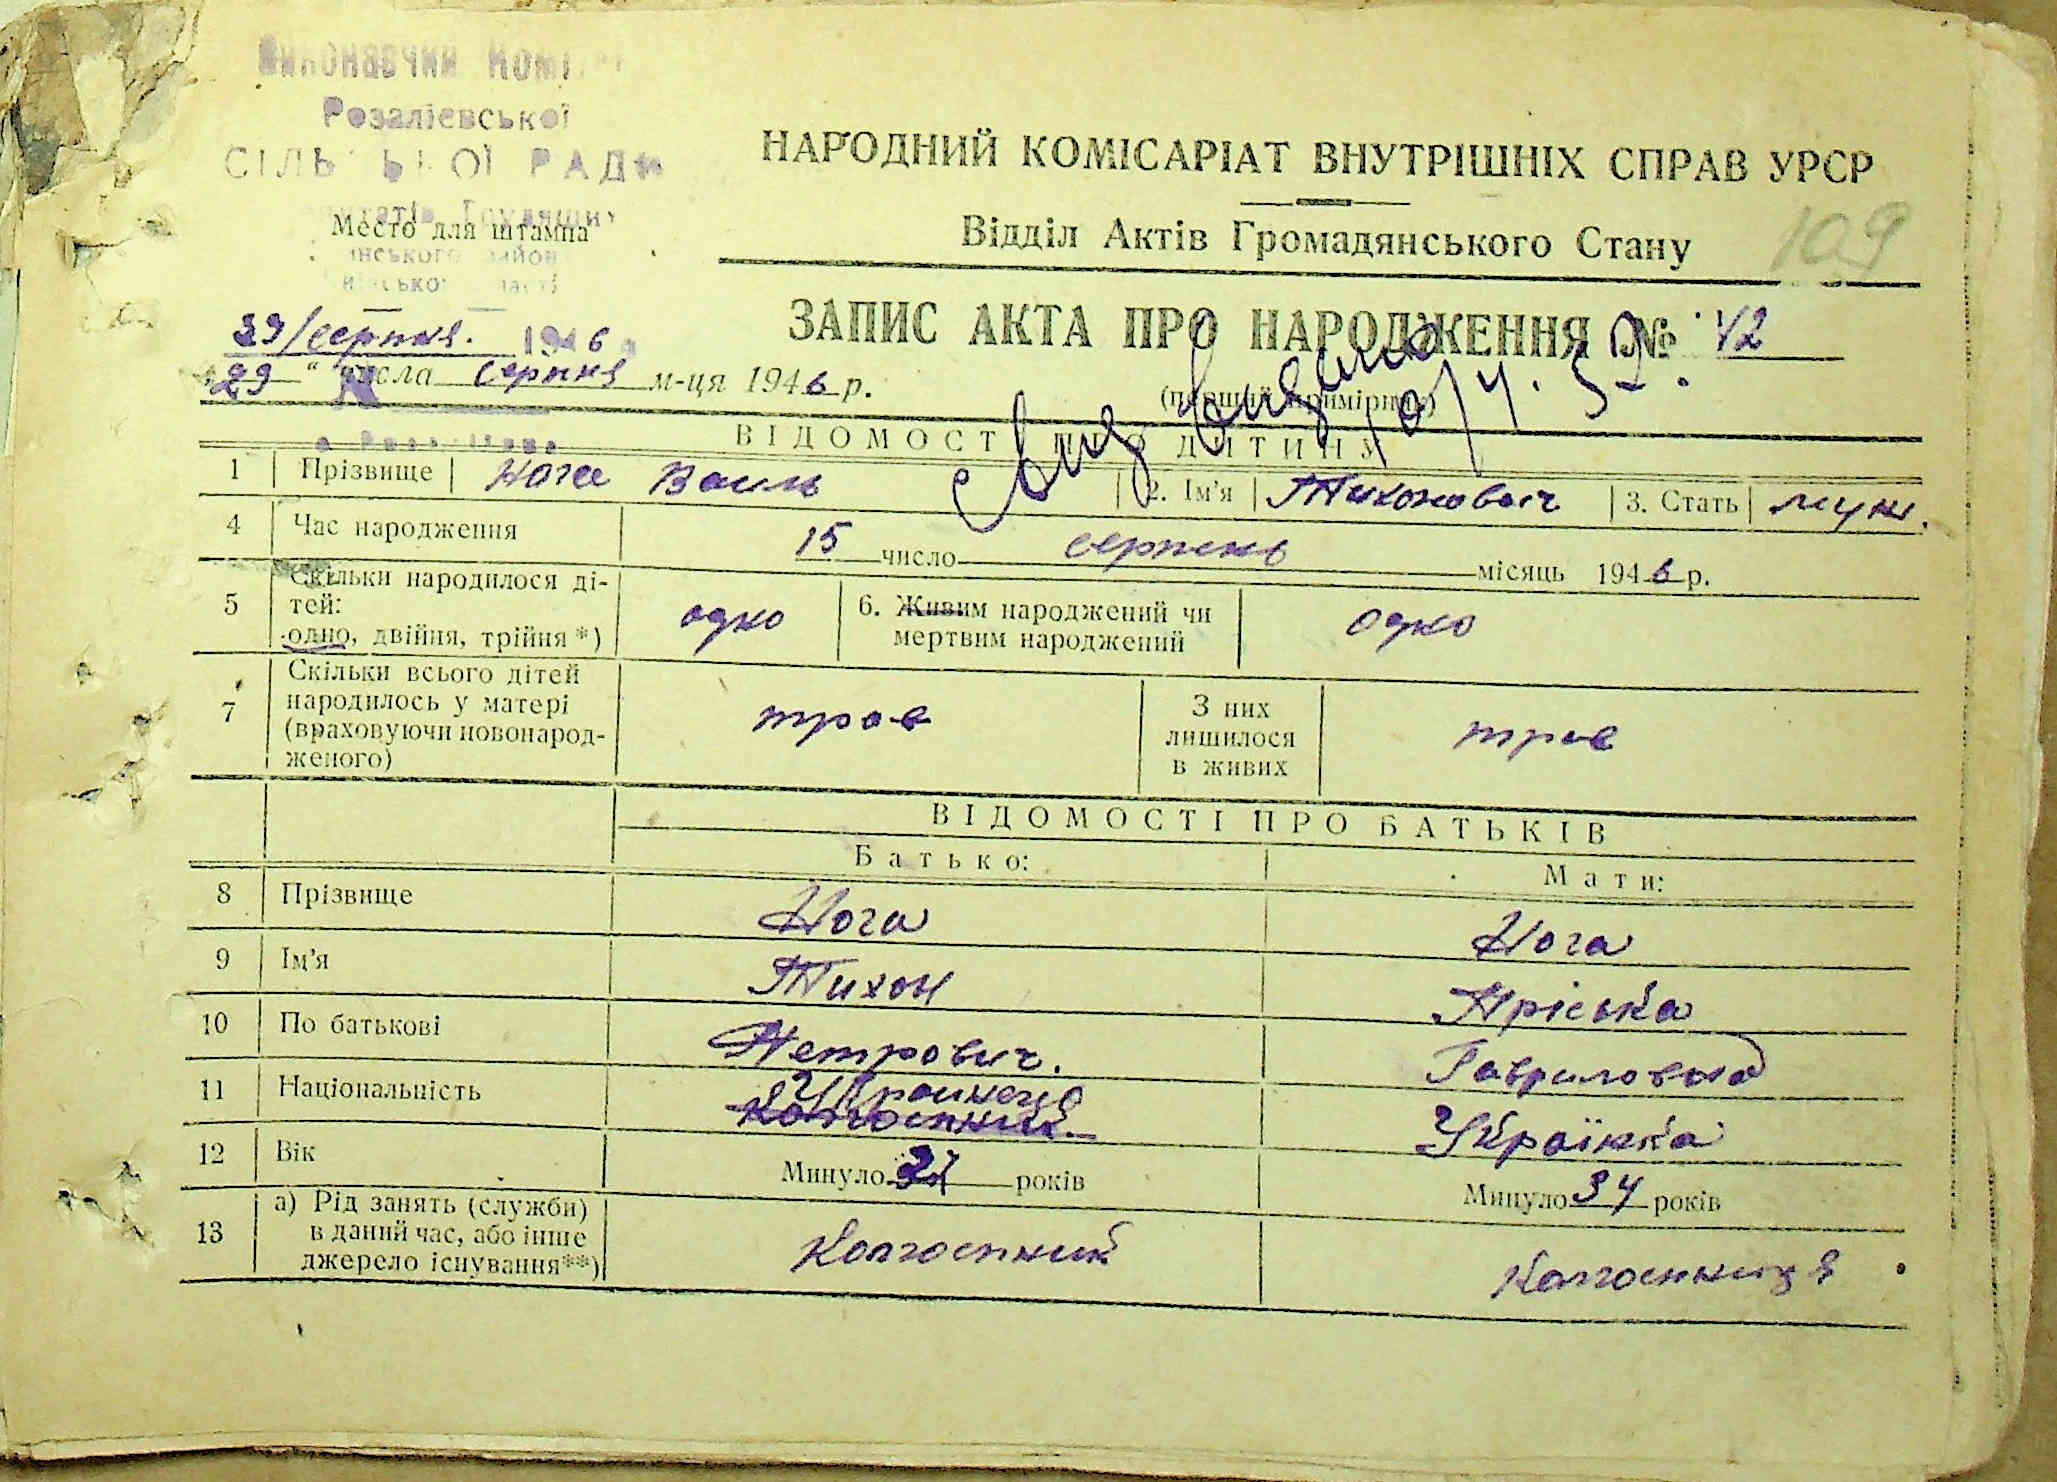 Виконавчий Комітет
Розаліевської
СІЛЬСЬКОЇ РАДИ
Место для штампа
НАРОДНИЙ КОМІСАРІАТ ВНУТРІШНІХ СПРАВ УРСР
Відділ Актів Громадянського Стану
109
29/серпня. 1946
ЗАПИС АКТА ПРО НАРОДЖЕННЯ № 42
29 " числа серпня м-ця 1946 р.
(перший примірник)
Свид видано 10/4.52.
ВІДОМОСТІ ПРО ДИТИНУ
1 Прізвище Нога Василь 2. Ім'я Тихонович 3. Стать муж.
4 Час народження 15 число серпень місяць 1946 р.
5 Скільки народилося ді-
тей:
одно, двійня, трійня *) одно 6. Живим народжений чи
мертвим народжений одно
7 Скільки всього дітей
народилось у матері
(враховуючи новонарод-
женого) троє З них
лишилося
в живих троє
ВІДОМОСТІ ПРО БАТЬКІВ
Батько: Мати:
8 Прізвище Нога Нога
9 Ім'я Тихон Пріська
10 По батькові Петрович. Гавриловна
11 Національність Українець Українка
Колгоспник.
12 Вік Минуло років Минуло 34 років
13 а) Рід занять (служби)
в даний час, або інше
джерело існування**) Колгоспник Колгоспниця